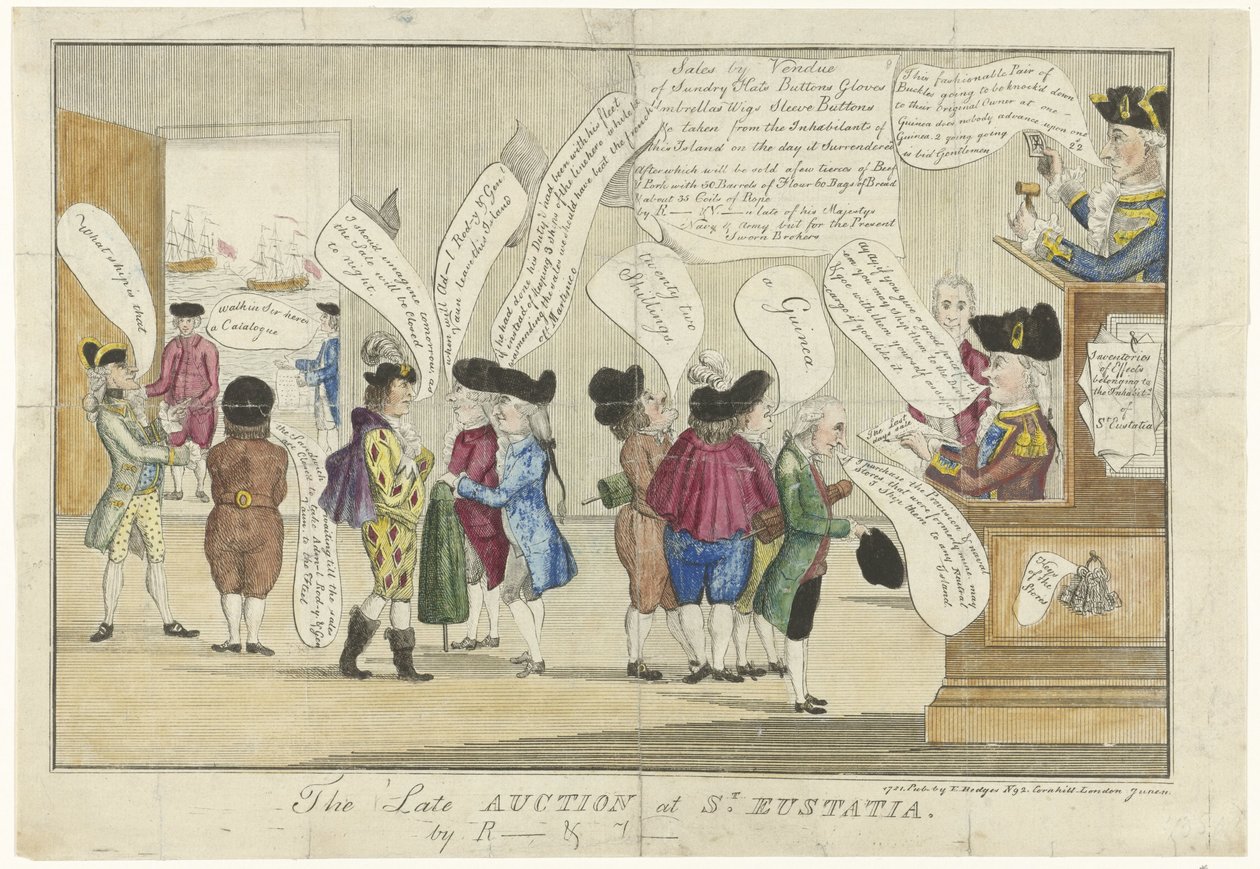 What ship is that
walk in Ser heres
a Catalogue
the Sandwich waiting till the sales
is Closed to take Adm—l Rod—y & Gen
Vaun. to the Fleet
I shoud imagine
the Sale will be Closed
tomorrow at
to nigt.
when will Ad—l Rod—y & Genl
Vaun leave this Island
if he had done his Duty & had been with his fleet
instead of keeping 3 ships of the line here while he
was mending the sales we should have beat the french
off Martinico
Sales by Vendue
of Sundry Hats Buttons Gloves
Umbrellas Wigs Sleeve Buttons
&c taken from the Inhabitants of
this Island on the day it Surrendered
After which will be sold a few tierces of Beef
& Pork with 50 Barrels of Flour 60 Bags of Bread
& about 35 Coils of Rope
by R— & V—n late of his Majestys
Navy & Army but for the Present
Sworn Brokers
This fashionable Pair of
Buckles going to be knock'd down
to their original Owner at one
Guinea does nobody advance upon one
Guinea 2 going going
22
is bid Gentlemen
twenty two
Shillings
a Guinea
ay ay if you give a good price for
em you may ship them to the
& goe with them yourself as
cargo if you like it
The Last
days sale
I purchase the Provision & naval
Stores that were formerly mine may
I Ship them to any Neutral
Island
Inventories
of Effects
belonging to
the Inhabits
of
St Eustatia
Keys
of the
Stores
1781. Pub. by E. Hedges No 92. Cornhill London June 11.
The Late AUCTION at ST. EUSTATIA.
by R— & V—